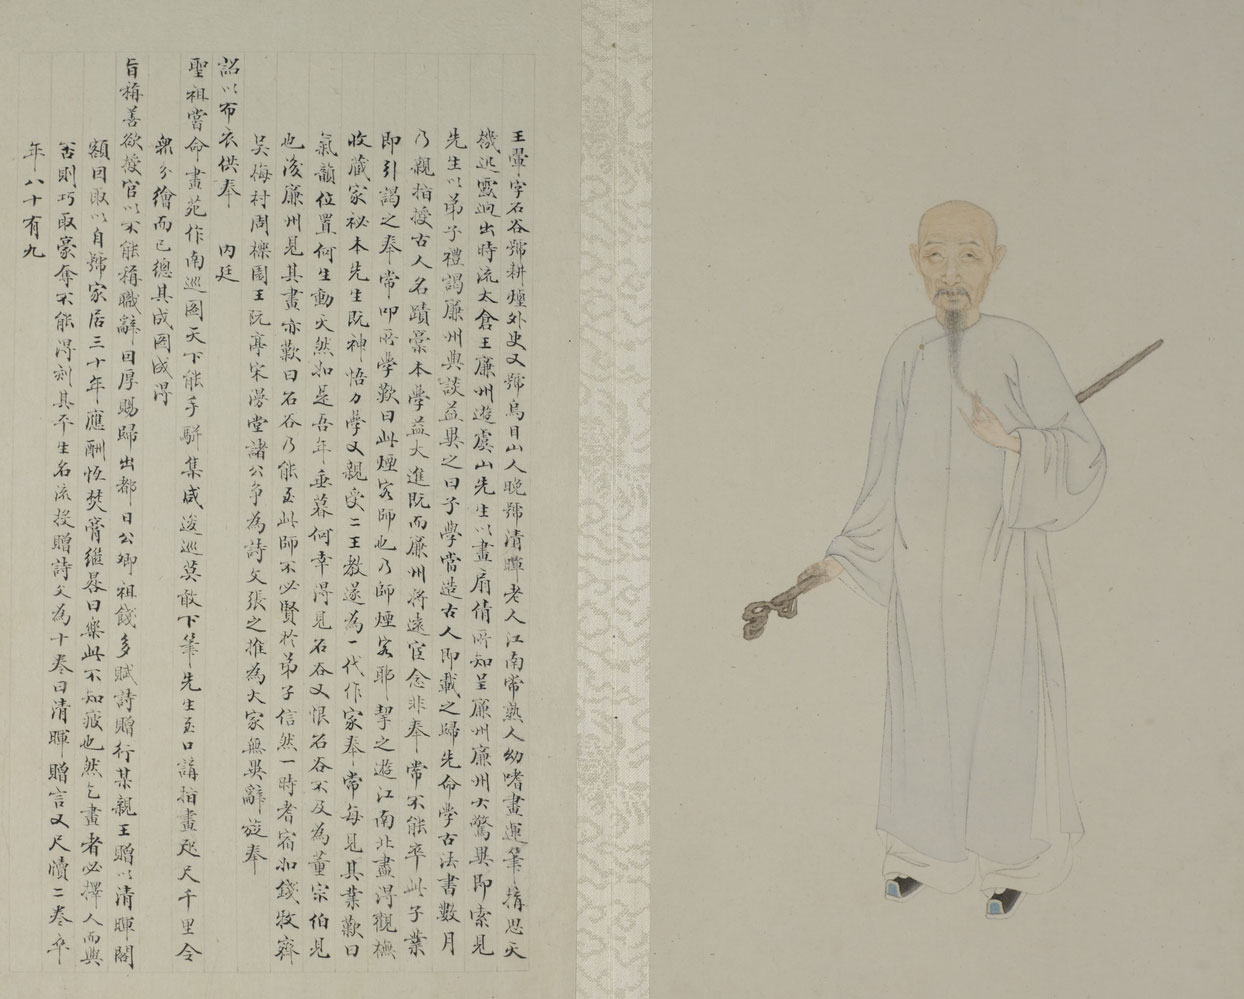 王翬字石谷號耕煙外史又號烏目山人晚號清暉老人江南常熟人幼嗜畫運筆搆思天
機迅靈迥出時流太倉王廉州遊虞山先生以畫扇倩所知呈廉州廉州大驚異即索見
先生以弟子禮謁廉州與談益異之曰子學當造古人即載之歸先命學古法書數月
乃親指授古人名蹟稾本學益大進既而廉州將遠宦念非奉常不能卒此子業
即引謁之奉常叩所學歎曰此煙客師也乃師煙客耶挈之遊江南北盡得觀橅
收藏家祕本先生既神悟力學又親受二王教遂為一代作家奉常每見其業歎曰
氣韻位置何生動天然如是吾年垂暮何幸得見石谷又恨石谷不及為董宗伯見
也後廉州見其畫亦歎曰石谷乃能至此師不必賢於弟子信然一時耆宿如錢牧齋
吳梅村周櫟園王阮亭宋漫堂諸公爭為詩文張之推為大家無異辭旋奉
詔以布衣供奉 內廷
聖祖嘗命畫苑作南巡圖天下能手駢集咸逡巡莫敢下筆先生至口講指畫咫尺千里令
衆分繪而已總其成圖成得
旨稱善欲授官以不能稱職辭曰厚賜歸出都日公卿祖餞多賦詩贈行某親王贈以清暉閣
額因取以自號家居三十年應酬恆焚膏繼晷曰樂此不知疲也然乞畫者必擇人而與
否則巧取豪奪不能得刻其平生名流投贈詩文為十卷曰清暉贈言又尺牘二卷卒
年八十有九